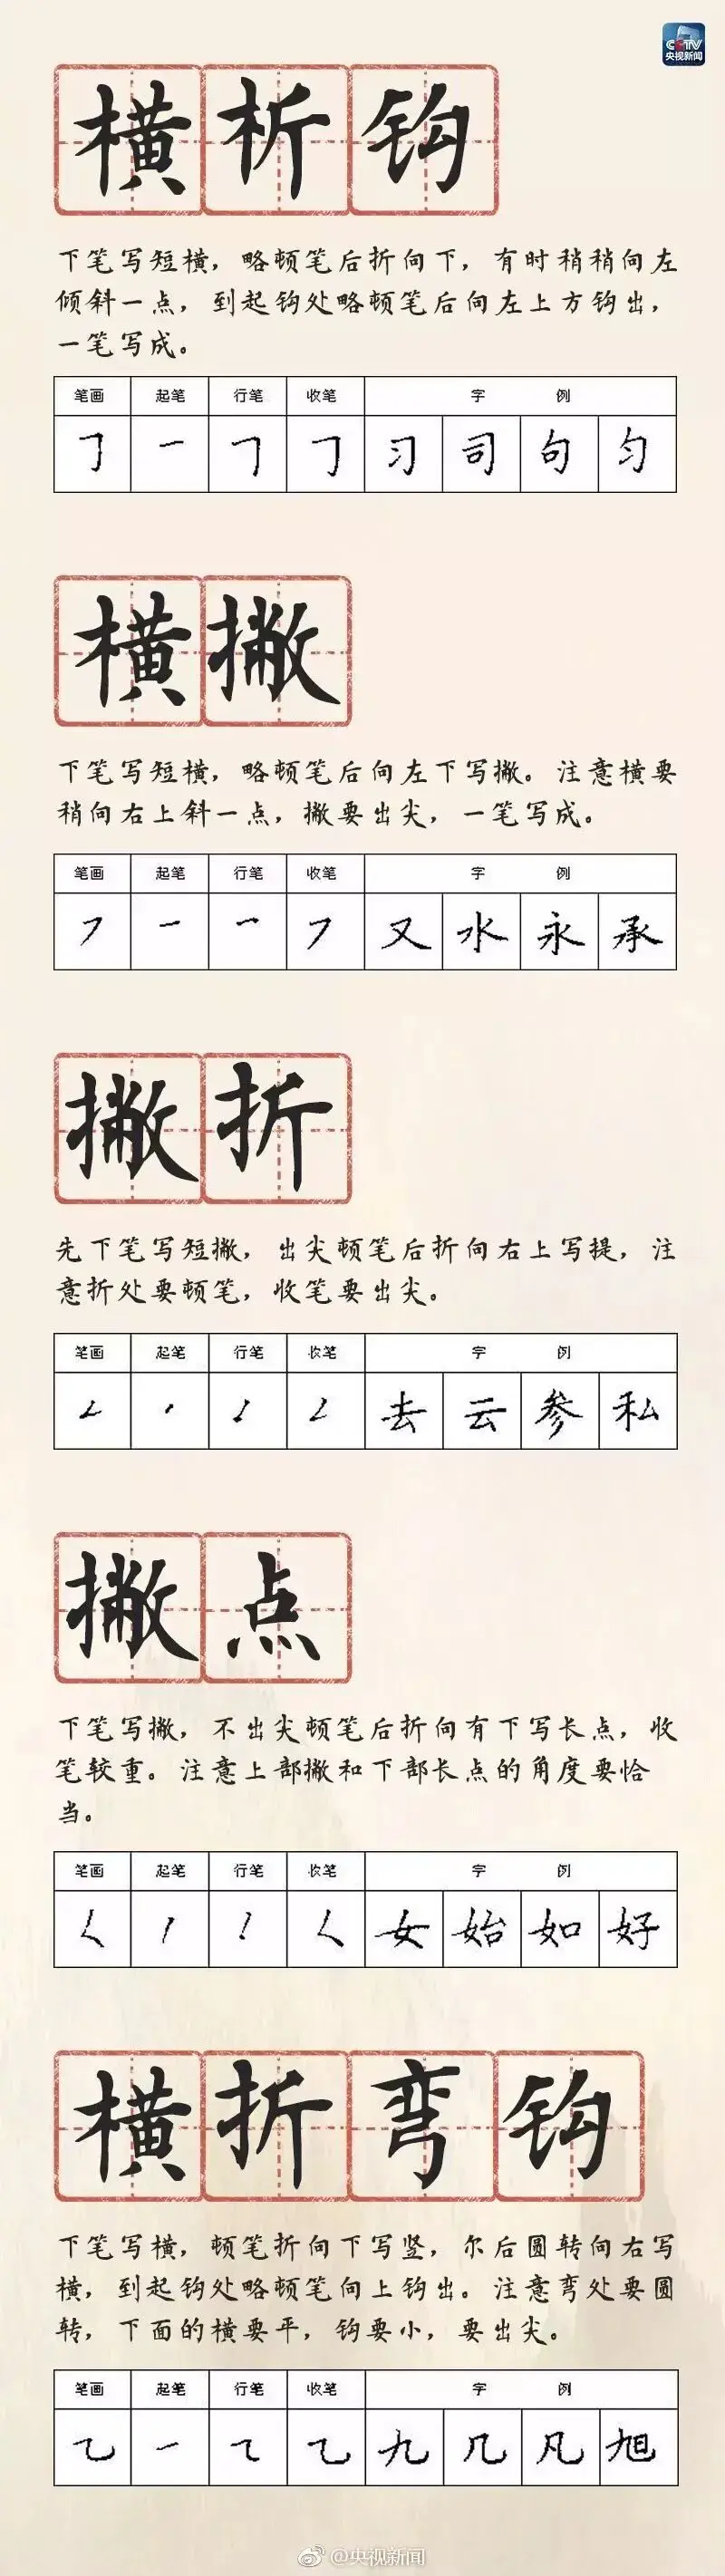 CCTV
央视新闻
横析钩
下笔写短横，略顿笔后折向下，有时稍稍向左
倾斜一点，到起钩处略顿笔后向左上方钩出，
一笔写成。
笔画 起笔 行笔 收笔 字 例
㇆ 一 ㇕ ㇆ 习 司 句 匀
横撇
下笔写短横，略顿笔后向左下写撇。注意横要
稍向右上斜一点，撇要出尖，一笔写成。
笔画 起笔 行笔 收笔 字 例
㇇ 一 乛 ㇇ 又 水 永 承
撇折
先下笔写短撇，出尖顿笔后折向右上写提，注
意折处要顿笔，收笔要出尖。
笔画 起笔 行笔 收笔 字 例
㇜ 丶 ㇜ ㇜ 去 云 参 私
撇点
下笔写撇，不出尖顿笔后折向有下写长点，收
笔较重。注意上部撇和下部长点的角度要恰
当。
笔画 起笔 行笔 收笔 字 例
㇛ 丿 ㇛ 女 始 如 好
横折弯钩
下笔写横，顿笔折向下写竖，尔后圆转向右写
横，到起钩处略顿笔向上钩出。注意弯处要圆
转，下面的横要平，钩要小，要出尖。
笔画 起笔 行笔 收笔 字 例
㇈ 一 ㇍ ㇈ 九 几 凡 旭
@央视新闻